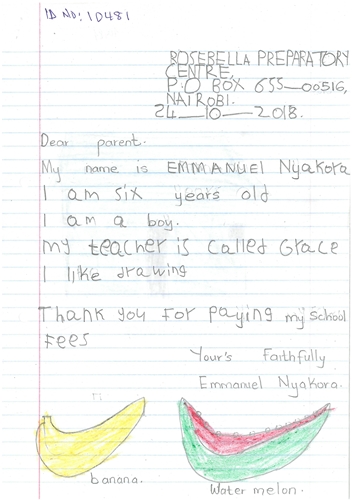 ID NO: 10481
ROSEBELLA PREPARATORY
CENTRE,
P.O BOX 655-00516,
NAIROBI.
24-10-2018.
Dear parent.
My name is EMMANUEL Nyakora
I am six years old
I am a boy.
my teacher is called Grace
I like drawing
Thank you For paying my School
Fees
Your's Faithfully
Emmanuel Nyakora.
banana.
Water melon.